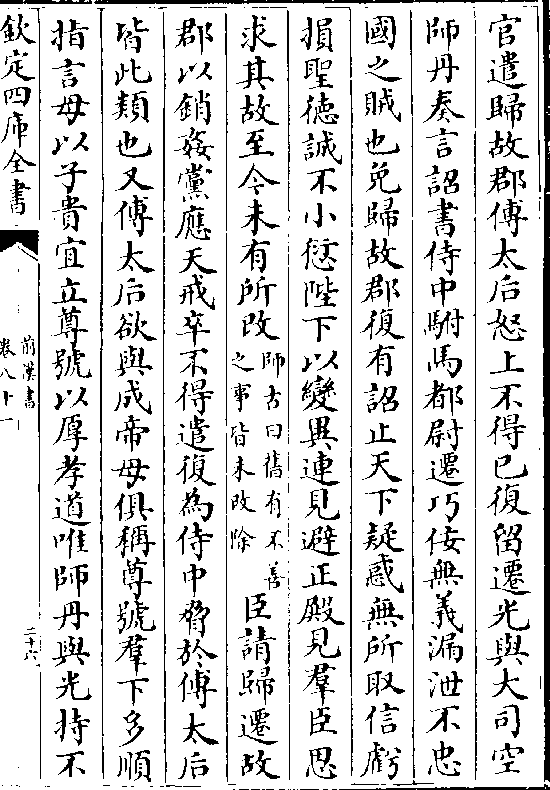 官遣歸故郡傅太后怒上不得已復留遷光與大司空
師丹奏言詔書侍中駙馬都尉遷巧佞無義漏泄不忠
國之賊也免歸故郡復有詔止天下疑惑無所取信虧
損聖德誠不小愆陛下以變異連見避正殿見羣臣思
求其故至今未有所改師古曰舊有不善之事皆未改除臣請歸遷故
郡以銷姦黨應天戒卒不得遣復為侍中脅於傅太后
皆此類也又傅太后欲與成帝母俱稱尊號羣下多順
指言母以子貴宜立尊號以厚孝道唯師丹與光持不
欽定四庫全書
前漢書
卷八十一
二十六